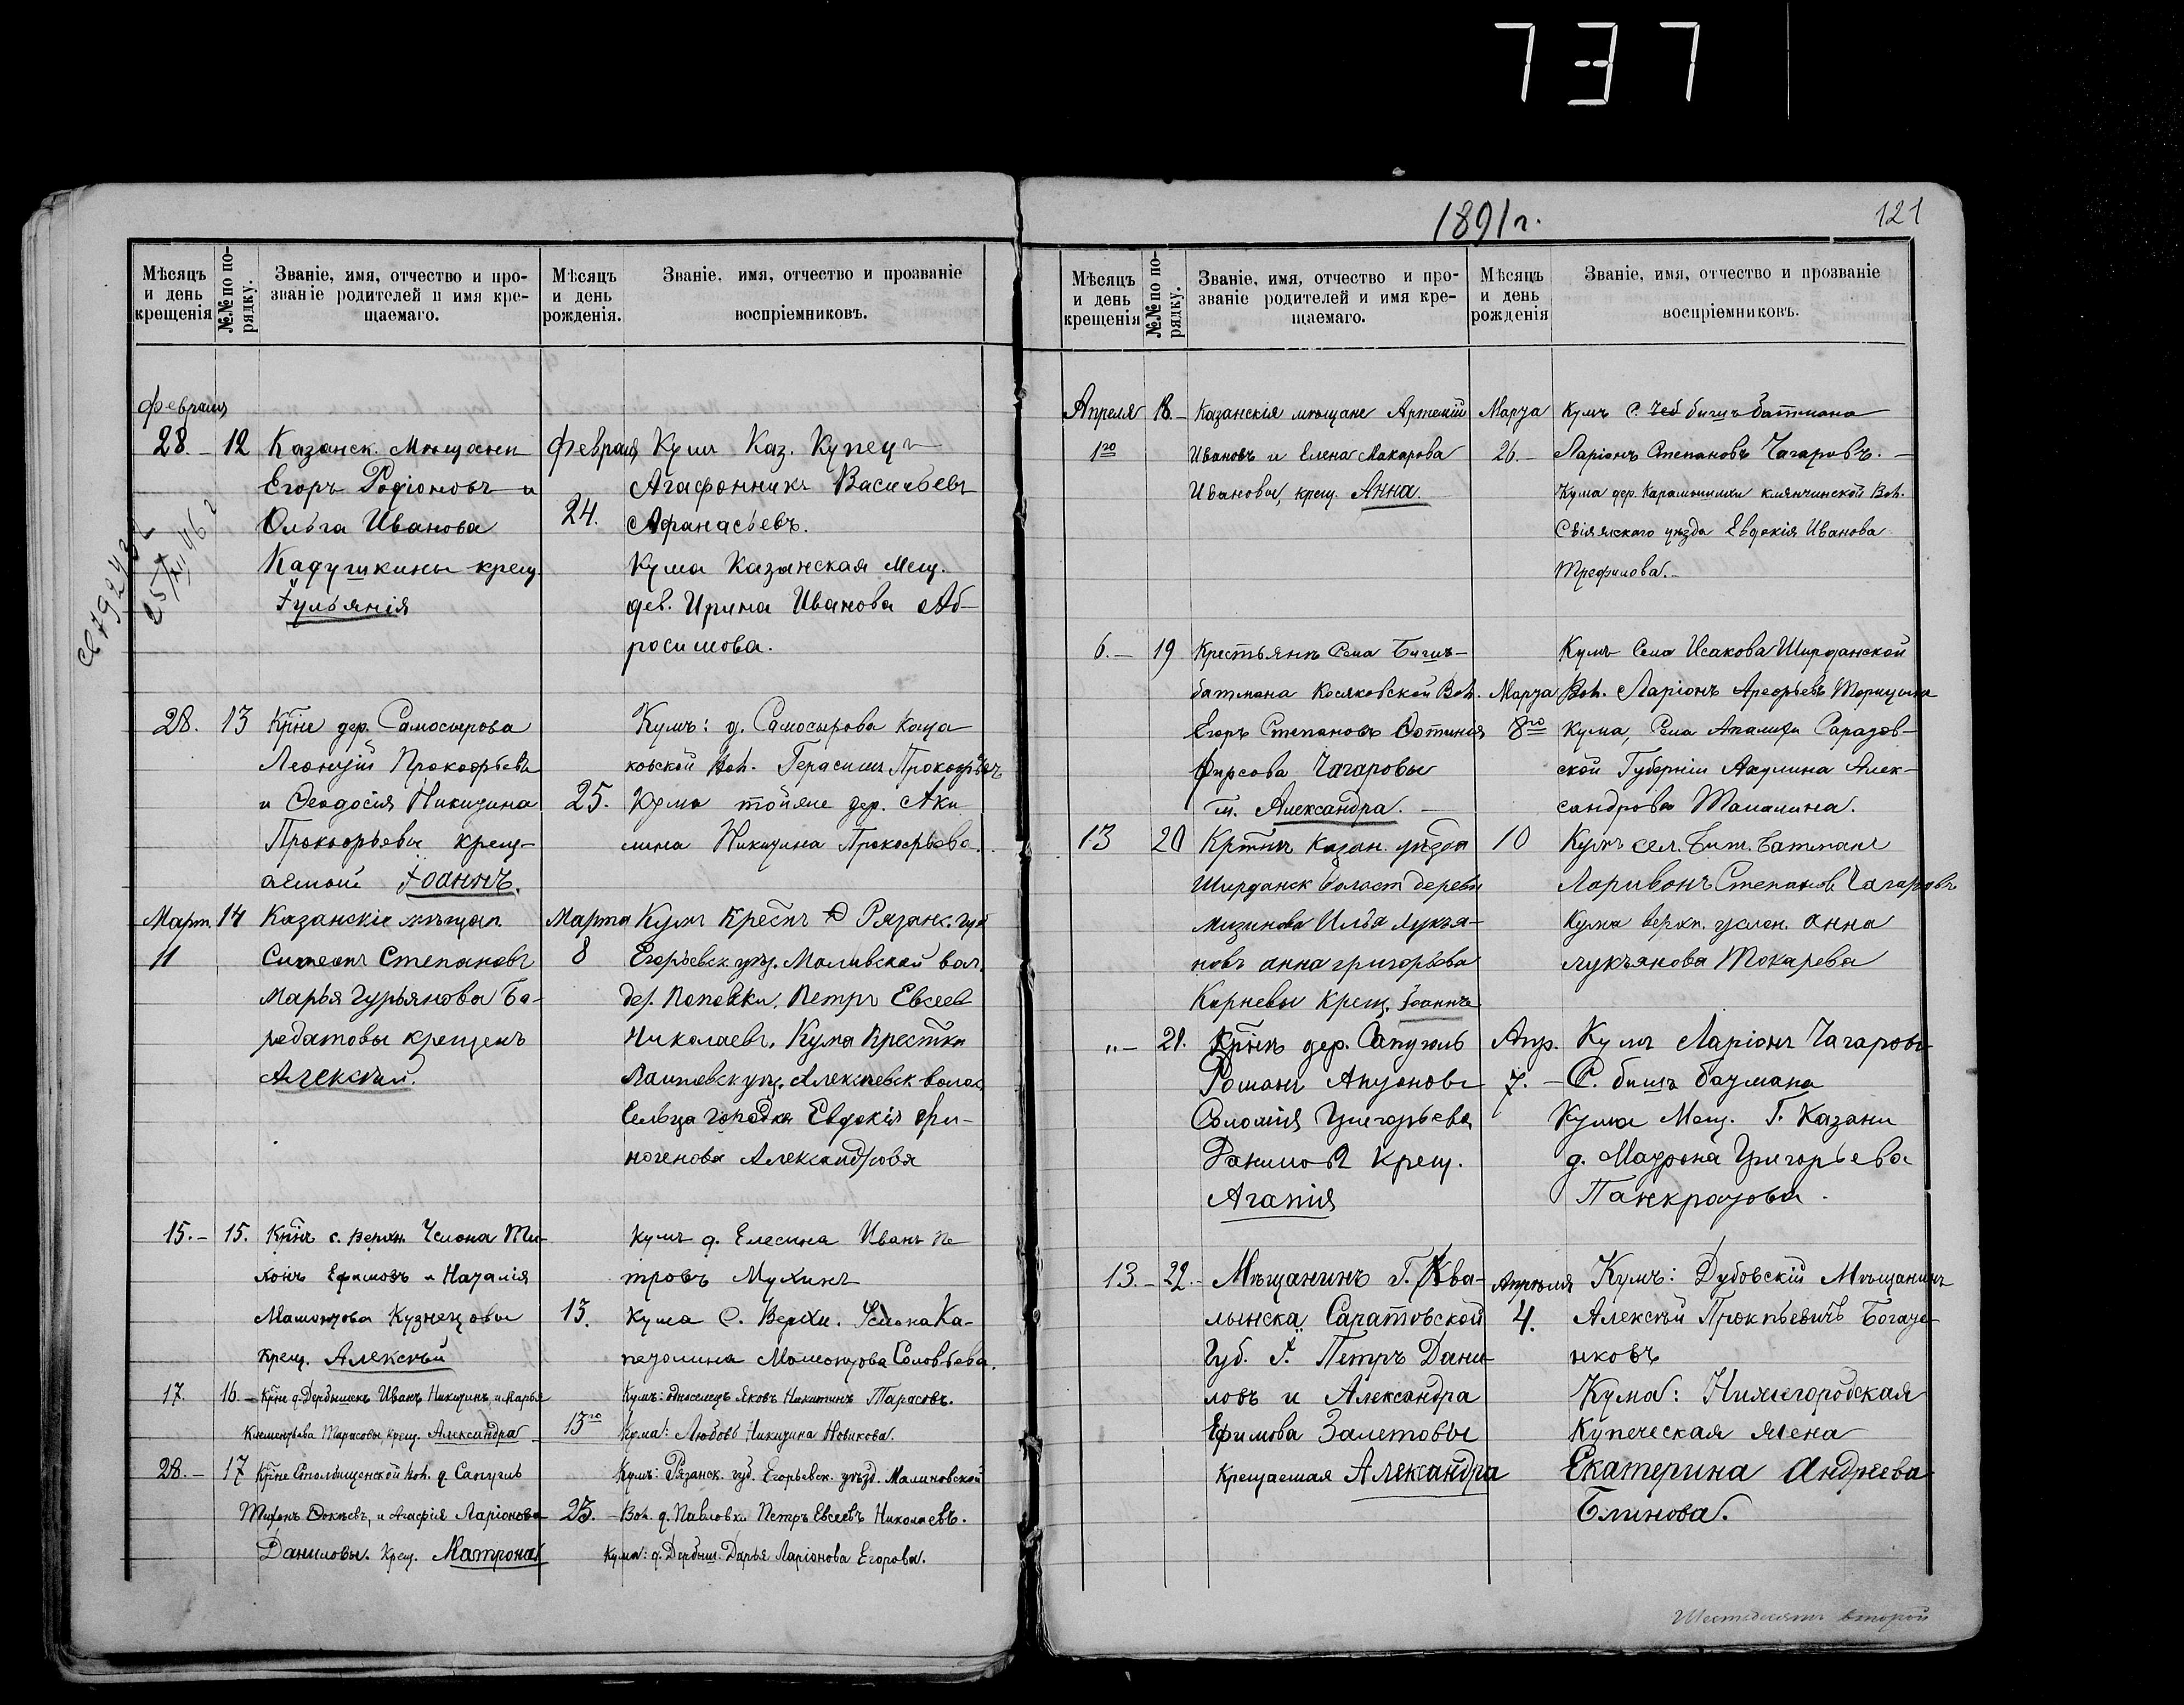 737
1891 г.
121
Мѣсяцъ и день крещенія
№№ по порядку.
Званіе, имя, отчество и прозваніе родителей и имя крещаемаго.
Мѣсяцъ и день рожденія.
Званіе, имя, отчество и прозваніе воспріемниковъ.
Февраля
28. - 12 Казанск. Мѣщане Февраля Кумъ Каз. Купецъ
Егоръ Родіоновъ и Агафонникъ Васильевъ
Ольга Иванова 24. Афанасьевъ.
Кадушкины крещ. Кума Казанская Мещ.
Іульянія дев. Ирина Иванова Аб-
росимова.
28. 13 Кр҃не дер. Самосырова Кумъ: д. Самосырова Коща-
Леонтій Прокофьевъ ковской Вол. Герасимъ Прокофьевъ
и Ѳеодосія Никитина 25. Кума тойже дер. Аку
Прокофьевы крещ- лина Никитина Прокофьева.
аемый Іоаннъ.
Март. 14 Казанскіе мѣщан. Марта Кумъ Крестн Рязанс. губ
11 Симеонъ Степановъ 8 Егорьевск уѣз. Маливской вол.
Марья Гурьянова Бо- дер. Поповки, Петръ Евсеев
родатовы крещенъ Николаевъ. Кума Крестка
Алексѣй. Лаишевск уѣз. Алексеевск волос
Сельца городка Евдокія
Александрова
15. - 15. Кр҃нъ с. Верхн. Услона Ти- Кумъ д. Елесина Иванъ Пе
хонъ Ефимовъ и Наталія тровъ Мухинъ
Мамонтова Кузнецовы 13. Кума С. Верхн. Услона Ка-
Крещ. Алексѣй питолина Мамонтова Соловьева.
17. 16. - Кр҃не д. Дербышекъ Иванъ Никитинъ и Марья Кумъ: односелецъ Яковъ Никитинъ Тарасовъ.
Клементьева Тарасовы, крещ. Александра 13го Кума: Любовь Никитина Новикова.
28. - 17 Кр҃не Столбищенской вол. д Сапуголь Кумъ: Рязанск. губ. Егорьевск. уѣзд. Малиновской
Тифонъ Ѳокѣевъ, и Агафія Ларіонова 25. - Вол. д. Павловки Петръ Евсеевъ Николаевъ.
Даниловы. Крещ. Матрона Кума: д. Дербыш. Дарья Ларіонова Егорова.
Мѣсяцъ и день крещенія
№№ по порядку.
Званіе, имя, отчество и прозваніе родителей и имя крещаемаго.
Мѣсяцъ и день рожденія
Званіе, имя, отчество и прозваніе воспріемниковъ.
Апреля 18. - Казанскія мѣщане Артемій Марта Кумъ С. бишъ батмана
1го Ивановъ и Елена Макарова 26. - Ларіонъ Степановъ Чагаровъ. -
Ивановы, крещ. Анна. Кума дер. Вол.
Свіяжскаго уѣзда Евдокія Иванова
Трефилова. -
6. - 19 Крестьянъ Села Бишъ- Кумъ Села Исакова Ширданской
батмана Косяковской Вол. Марта Вол. Ларіонъ
Егоръ Степановъ Фотинія 8го Кума, Села Саратов-
Фирсова Чагаровы ской Губерніи Акулина Алек-
м. Александра. - сандрова
13 20 Кр҃тнъ Казан. уѣзда 10 Кумъ сел. Биш. батманъ
Ширданск Волост деревн Ларивонъ Степанов Чагаровъ
Мизинова Илья Лукья- Кума верхн. услон. Анна
новъ анна григорьева лукьянова Токарева
Корневы крещ. Іоаннъ
„ - 21. Кр҃нъ дер. Сапуголь Апр. Кумъ Ларіонъ Чагаровъ
Романъ Антоновъ 7. - С. бишъ батмана
Соломія Григорьева Кума Мещ. Г. Казани
Данилов Крещ. д. Матрона Григорьева
Агапія Панкратова.
13. - 22. - Мѣщанинъ Г. Хва- Апрѣля Кумъ: Дубовскій Мѣщанинъ
лынска Саратовской 4. Алексѣй Прокпьевичъ Богате-
Губ. Петръ Дани- нковъ
ловъ и Александра Кума: Нижегородская
Ефимова Залетовы Купеческая жена
Крещаемая Александра Екатерина Андреева
Блинова.
Шестьдесятъ второй